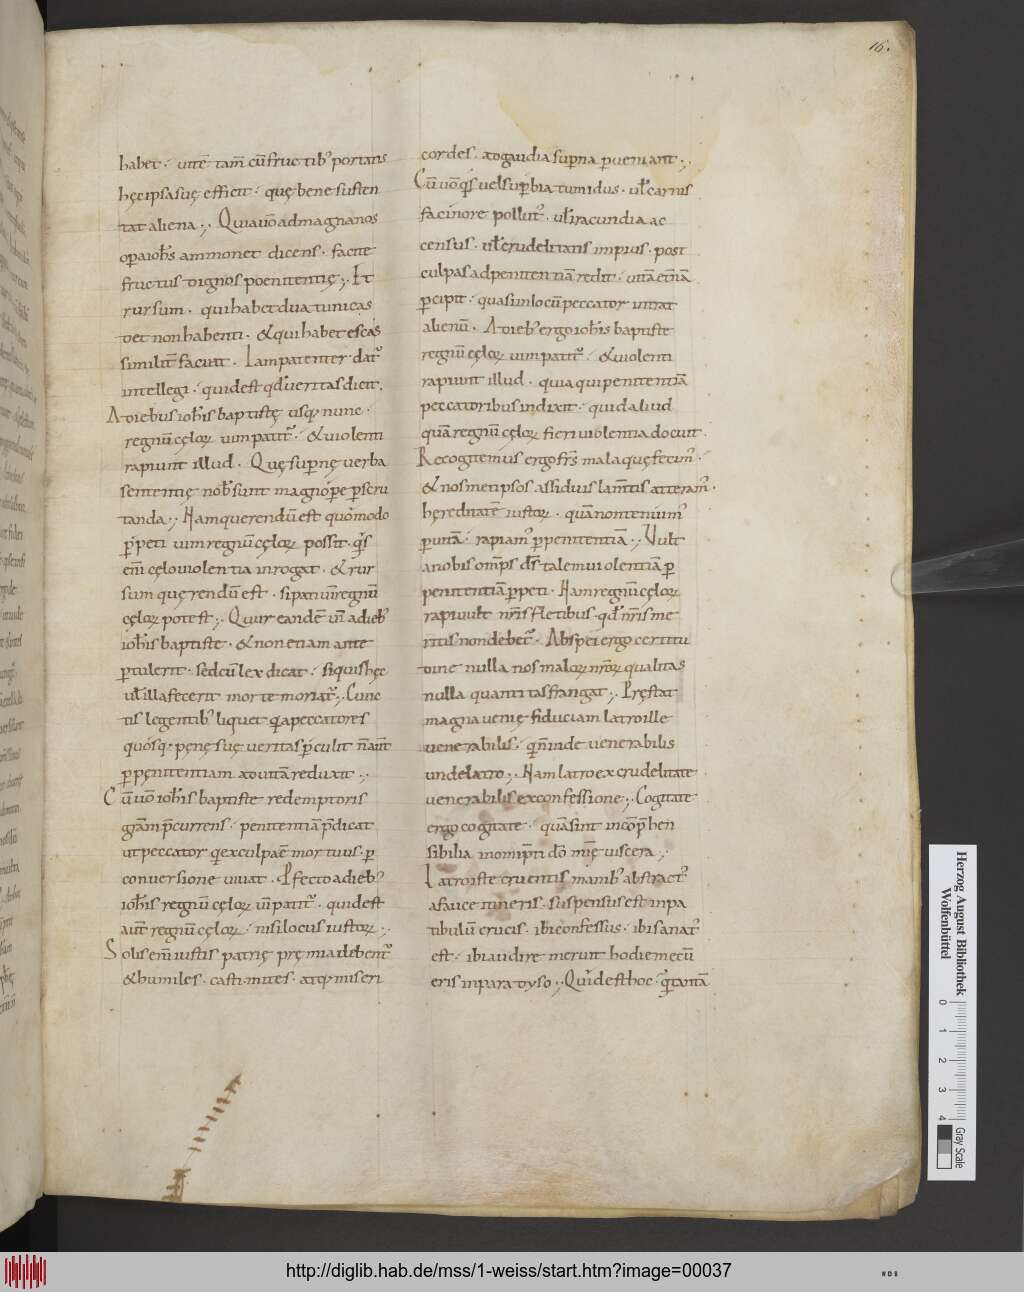 16.
habet · uitę tam̄ cū fructib; portans
hęc ipsa suę efficit · quę bene susten
tat aliena ·, Quia uō ad magnanos
opa ioħs ammonet dicens · facite
fructus dignos poenitentię ·, Et
rursum · qui habet dua tunicas
det non habenti · & qui habet escas
similit̄ faciat · Iam patenter dat᷒
intellegi · quid est qđ ueritas dicit ·
A diebus ioħis baptistę usq; nunc ·
regnū cęloꝝ uim patit᷒ · & uiolenti
rapiunt illud · Quę supnę uerba
sententię nob̄ sunt magnope pscru
tanda ·, Nam querendū est quomodo
ppeti uim regnū cęloꝝ possit · q̄s
em̄ cęlo uiolentia inrogat · & rur
sum querendū est · si pati uim regnū
cęloꝝ potest ·, Quur eandē uī adieb;
ioħis baptiste · & non etiam ante
ptulerit · sed cū lex dicat · si quis hęc
uł illa fecerit morte moriat᷒ ·, Cunc
tis legentib; liquet qa peccatores
quosq; pęnę suę ueritas pculit n̄ aūt
p pęnitentiam ad uitā reduxit ·,
Cū uō ioħis baptiste redemptoris
gr̄am p̄currens · penitentiā p̄dicat
ut peccator q̄ ex culpa ē mortuus · p
conuersione uiuat · Pfecto adieb;
ioħis regnū cęloꝝ uī patit᷒ · quid est
aūt regnū cęloꝝ · nisi locus iustoꝝ ·,
Solis em̄ iustis patrię pręmia debent᷒
& humiles · casti · mites · atq; miseri
cordes · ad gaudia supna pueniant ·,
Cū uō q̄s uel supbia tumidus · uł carnis
facinore pollut᷒ · uł iracundia ac
census · uł crudelitatis impius · post
culpas ad penitentiā redit · uitā et̄nā
pcipit · quasi in locū peccator intrat
alienū · A dieb; ergo ioħis baptiste
regnū cęloꝝ uim patit᷒ · & uiolenti
rapiunt illud · quia qui penitentiā
peccatoribus indixit · quid aliud
quā regnū cęloꝝ fieri uiolentia docuit ·
Recogitemus ergo fr̄s mala quę fecim᷒ ·
& nosmetipsos assiduis lam̄tis atteram᷒ ·
hęreditatē iustoꝝ · quā non tenuim᷒
p uitā · rapiam᷒ p penitentiā ·, Uult
a nobis om̄ps d̄s talem uiolentiā p
penitentiā ppeti · Nam regnū cęloꝝ
rapi uult nr̄is fletibus · qđ nr̄is me
ritis non debet᷒ · Ab spei ergo certitu
dine nulla nos maloꝝ nr̄oꝝ qualitas
nulla quantitas frangat ·, Pręstat
magna uenię fiduciam latro ille
uenerabilis · q̄ n̄ inde uenerabilis
unde latro ·, Nam latro ex crudelitate
uenerabilis ex confessione ·, Cogitate
ergo cogitate · quā sint incōp̄hen
sibilia in omip̄ti dō mię uiscera ·,
Latro iste cruentis manib; abstract᷒
a fauce itineris · suspensus est in pa
tibulū crucis · ibi confessus · ibi sanat᷒
est · ibi audire meruit hodie mecū
eris in paradyso ·, Quid est hoc · q̄s tantā
Herzog August Bibliothek
Wolfenbüttel
0 1 2 3 4
Gray Scale
http://diglib.hab.de/mss/1-weiss/start.htm?image=00037